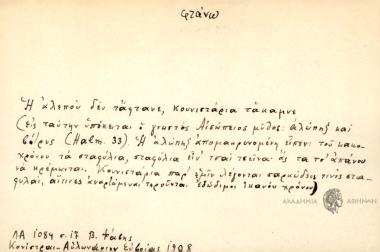 φτάνω
Ἡ ἀλεποῦ δὲν τἄφτανε, κουνιστάρια τἄκαμνε
(εἰς ταύτην ὑπόκειται ὁ γνωστὸς Αἰσώπειος μῦθος: ἀλώπηξ καὶ
βότρυς (Halm. 33). Ἡ ἀλώπηξ ἀπομακρυνομένη εἶπεν: τοῦ κακο-
χρόνου τὰ σταφύλια, σταφύλια εἶν' τσαὶ τσεῖνα· ἂς τα το' ἀπάνου
νὰ κρέμωνται. Κουνιστάρια παρ' ἡμῖν λέγονται σαρκώδεις τινὲς στα-
φυλαί, αἵτινες διατηροῦνται ἐδώδιμοι ἱκανὸν χρόνον)
ΛΑ 1084 σ. 17 Β. Φάβης
Κονίστραι - Αὐλωνάριον Εὐβοίας 1908
ΑΚΑΔΗΜΙΑ
ΑΘΗΝΩΝ